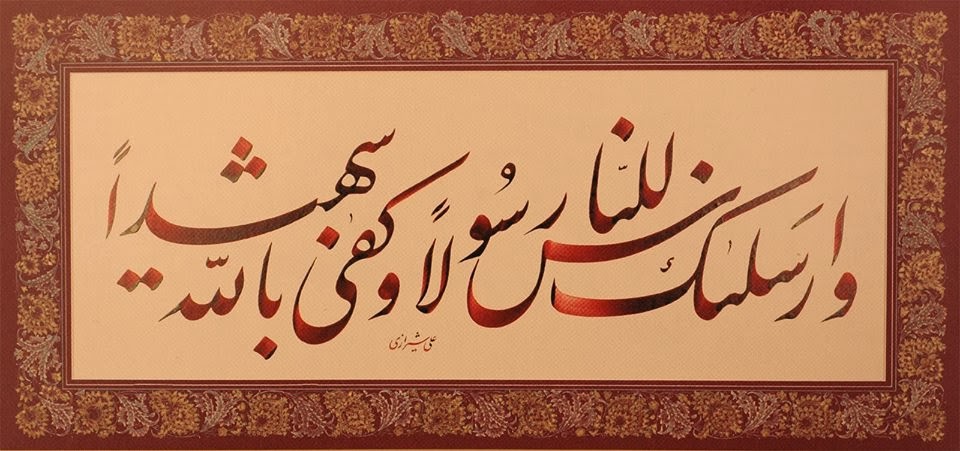 وارَسلنٰك للنّاس رسُولاً وكفىٰ باللّٰه شهيداً
علی شیرازی